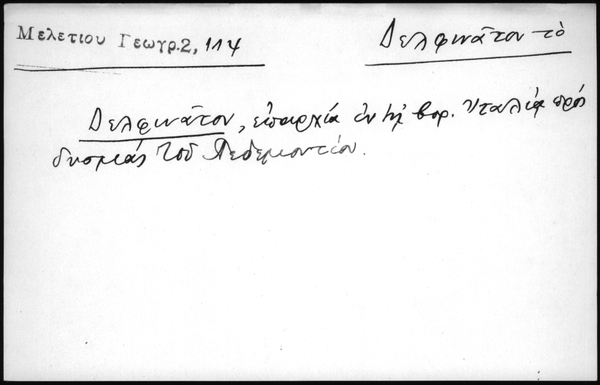 Μελετίου Γεωγρ. 2, 114
Δελφινᾶτον-τὸ
Δελφινᾶτον, ἐπαρχία ἐν τῇ βορ. Ἰταλίᾳ πρός
δυσμιάς τοῦ Πεδεμοντίου.